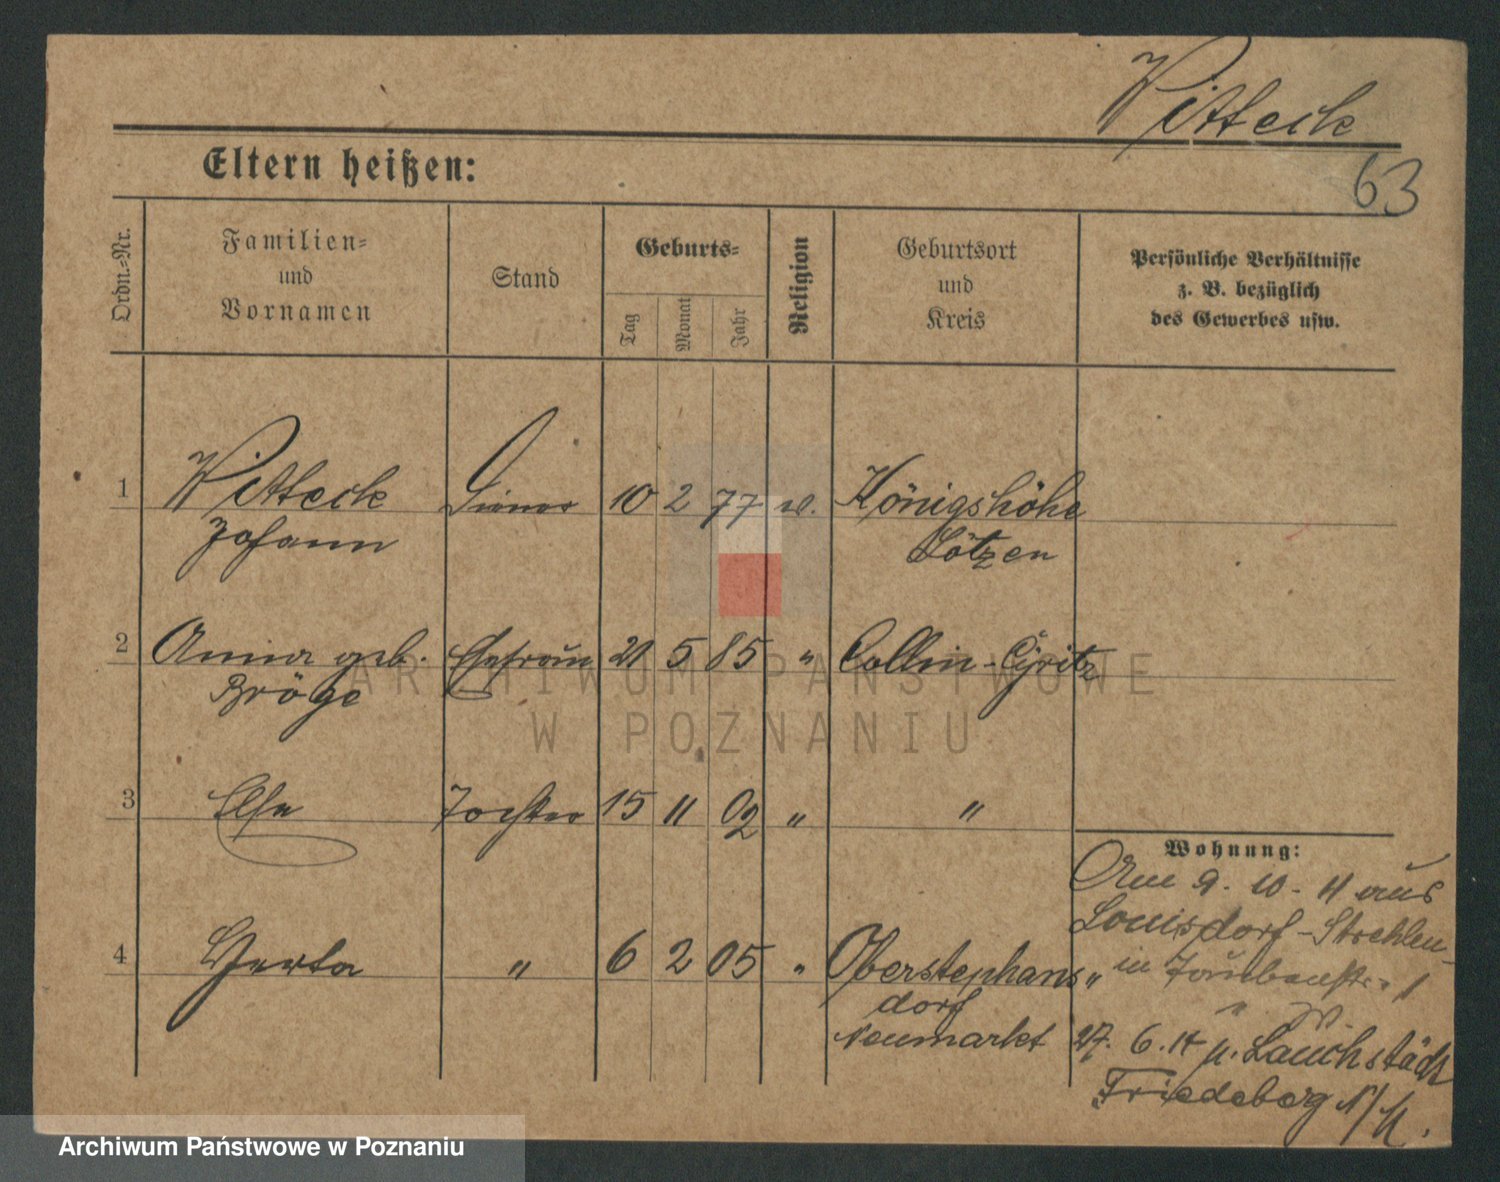 Witteck
63
Eltern heißen:
Ordn.-Nr.
Familien-
und
Vornamen
Stand
Geburts-
Tag
Monat
Jahr
Religion
Geburtsort
und
Kreis
Persönliche Verhältnisse
z. B. bezüglich
des Gewerbes usw.
1 Witteck Diener 10 2 77 Königshöhe
Johann Lötzen
2 Anna geb. Ehefrau 21 5 85 " Collin - Pyritz
Bröge
3 Else Tochter 15 11 02 " "
Wohnung:
Am 9. 10. 11 aus
Louisdorf - Strehlen
4 Herta " 6 2 05 " Oberstephans
" in 1
dorf
Neumarkt
27. 6. 14 n. Lauchstädt
Friedeberg N/M.
ARCHIWUM PAŃSTWOWE
W POZNANIU
Archiwum Państwowe w Poznaniu